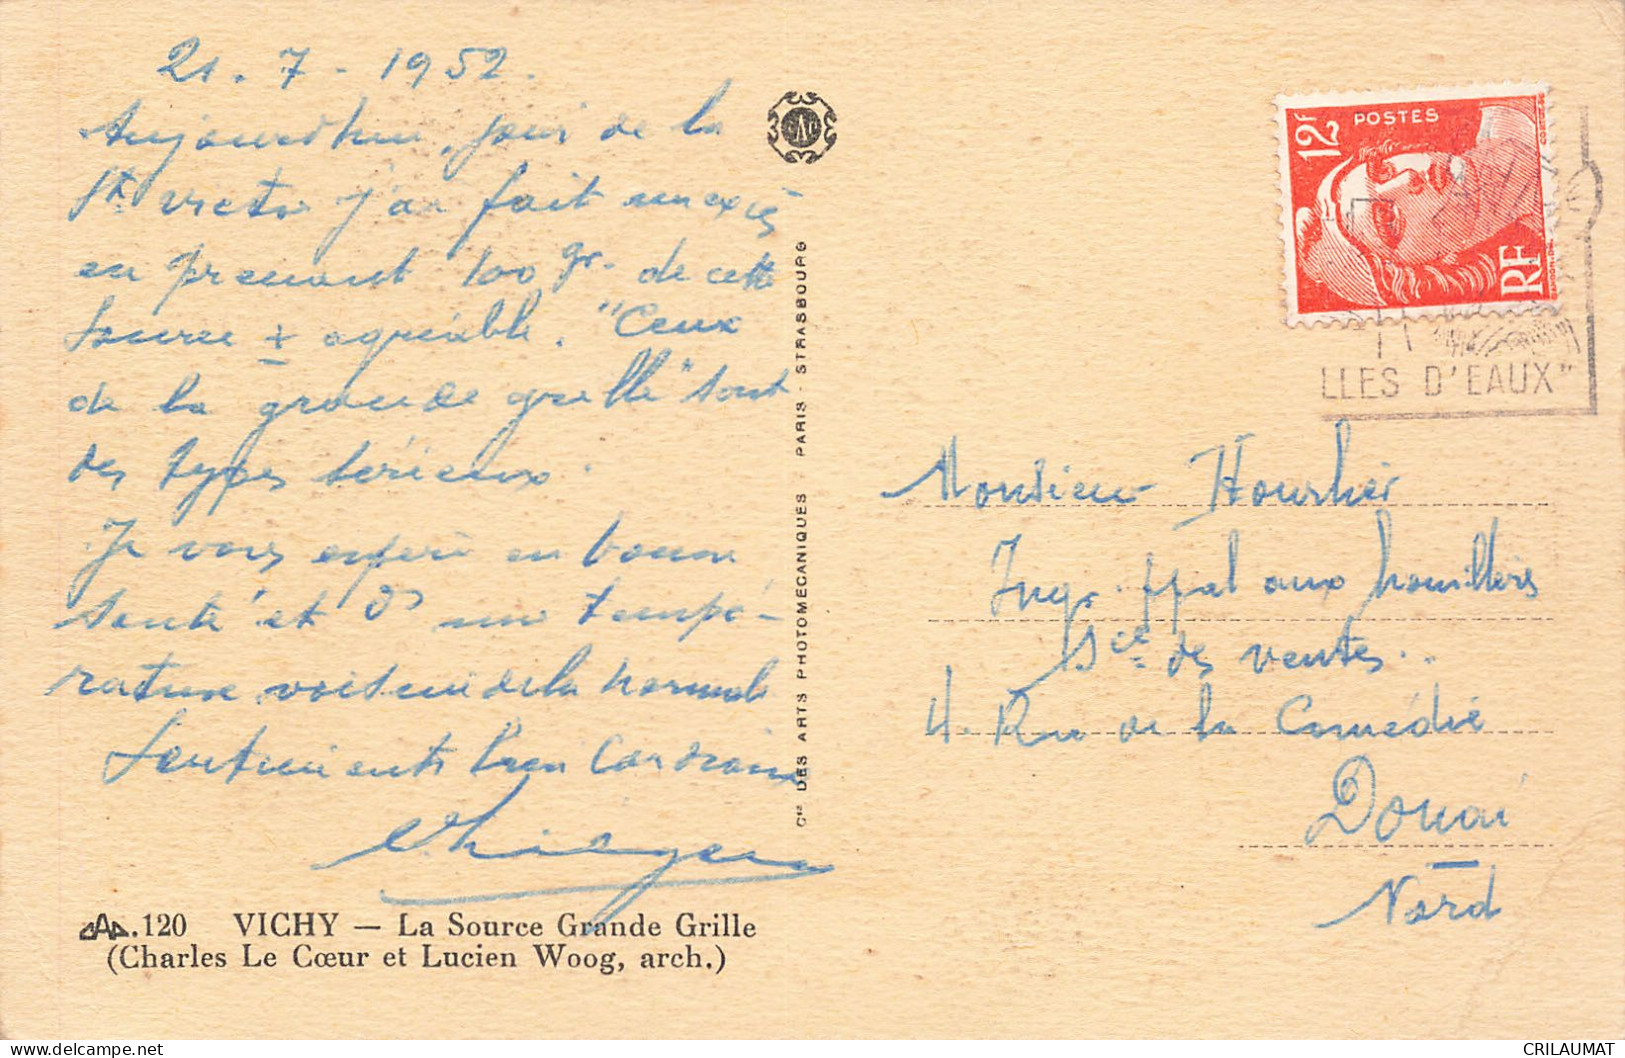 21.7-1952.
Aujourd'hui, jour de la
St Victor j'ai fait un excès
en prenant 100 gr. de cette
source ± agréable. "Ceux
de la grande grille" sont
des types sérieux.
Je vous espère en bonne
santé et ds une tempé-
rature voisine de la normale
Sentiments bien cordiaux
120 VICHY — La Source Grande Grille
(Charles Le Cœur et Lucien Woog, arch.)
Cie DES ARTS PHOTOMECANIQUES PARIS - STRASBOURG
POSTES
12F
RF
LLES D'EAUX"
Monsieur
Ingr ppal aux houillères
Sce des ventes..
4. Rue de la Comédie
Douai
Nord
CRILAUMAT